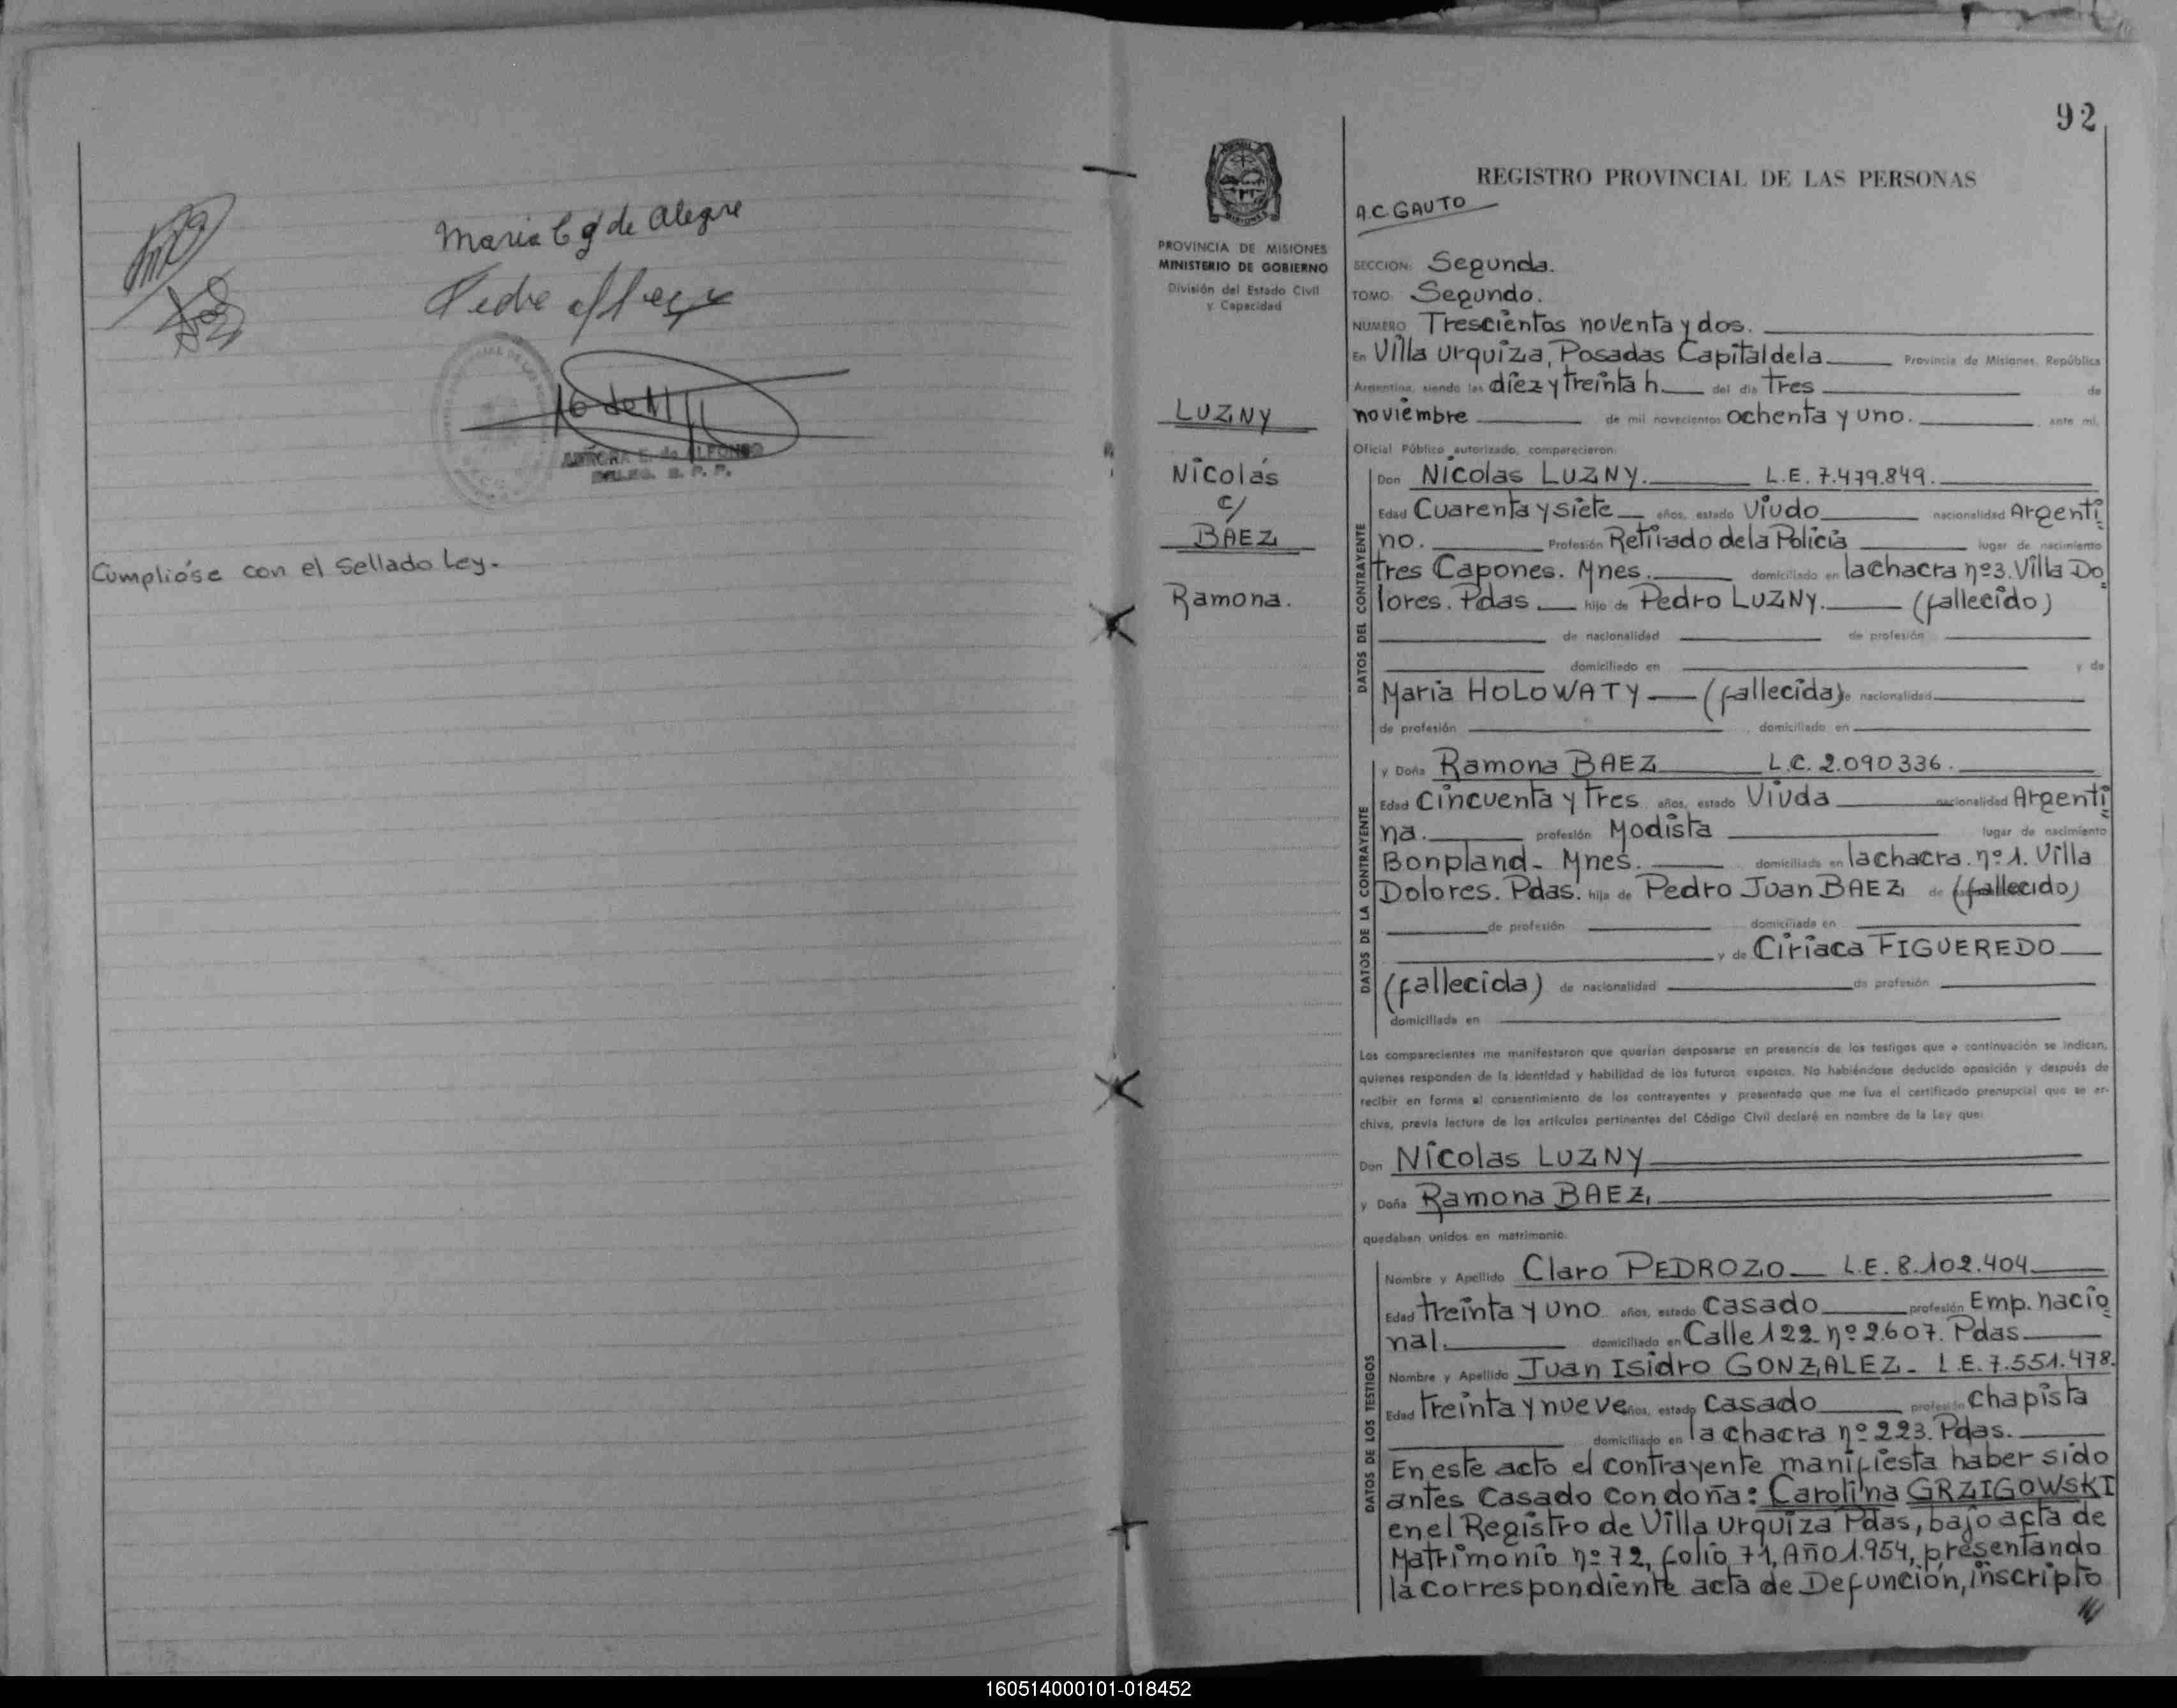 Maria C G de Alegre
AURORA E. de ALFONSO
DELEG. R. P. P.
Cumplióse con el Sellado Ley.
92
PROVINCIA DE MISIONES
MINISTERIO DE GOBIERNO
División del Estado Civil
y Capacidad
LUZNY
Nicolás
c/
BAEZ
Ramona.
REGISTRO PROVINCIAL DE LAS PERSONAS
A.C. GAUTO
SECCION: Segunda.
TOMO: Segundo.
NUMERO Trescientos noventa y dos.
En Villa Urquiza, Posadas Capital de la Provincia de Misiones, República
Argentina, siendo las diez y treinta h. del día Tres de
noviembre de mil novecientos ochenta y uno. ante mí,
Oficial Público autorizado, comparecieron:
DATOS DEL CONTRAYENTE
Don Nicolas LUZNY. L.E. 7.479.849.
Edad Cuarenta y siete años, estado Viudo nacionalidad Argenti
no. Profesión Retirado de la Policia lugar de nacimiento
tres Capones. Mnes. domiciliado en la chacra nº 3. Villa Do
lores. Pdas hijo de Pedro LUZNY. (fallecido)
de nacionalidad de profesión
domiciliado en y de
Maria HOLOWATY (fallecida) de nacionalidad
de profesión domiciliado en
DATOS DE LA CONTRAYENTE
y Doña Ramona BAEZ L.C. 2.090336.
Edad Cincuenta y Tres años, estado Viuda nacionalidad Argenti
na. profesión Modista lugar de nacimiento
Bonpland - Mnes. domiciliada en la chacra. nº 1. Villa
Dolores. Pdas. hija de Pedro Juan BAEZ de (fallecido)
de profesión domiciliada en
y de Ciriaca FIGUEREDO
(fallecida) de nacionalidad de profesión
domiciliada en
Los comparecientes me manifestaron que querían desposarse en presencia de los testigos que a continuación se indican,
quienes responden de la identidad y habilidad de los futuros esposos. No habiéndose deducido oposición y después de
recibir en forma el consentimiento de los contrayentes y presentado que me fue el certificado prenupcial que se ar-
chiva, previa lectura de los artículos pertinentes del Código Civil declaré en nombre de la Ley que:
Don Nicolas LUZNY
y Doña Ramona BAEZ,
quedaban unidos en matrimonio.
DATOS DE LOS TESTIGOS
Nombre y Apellido Claro PEDROZO L.E. 8.102.404
Edad treinta y uno años, estado Casado profesión Emp. nacio
nal. domiciliado en Calle 122 nº 2.607. Pdas
Nombre y Apellido Juan Isidro GONZALEZ - L.E. 7.551.478.
Edad treinta y nueve años, estado Casado profesión Chapista
domiciliado en la chacra nº 223. Pdas.
En este acto el contrayente manifiesta haber sido
antes Casado con doña: Carolina GRZIGOWSKI
en el Registro de Villa Urquiza Pdas, bajo acta de
Matrimonio nº 72, folio 71, Año 1.954, presentando
la correspondiente acta de Defunción, inscripto
160514000101-018452